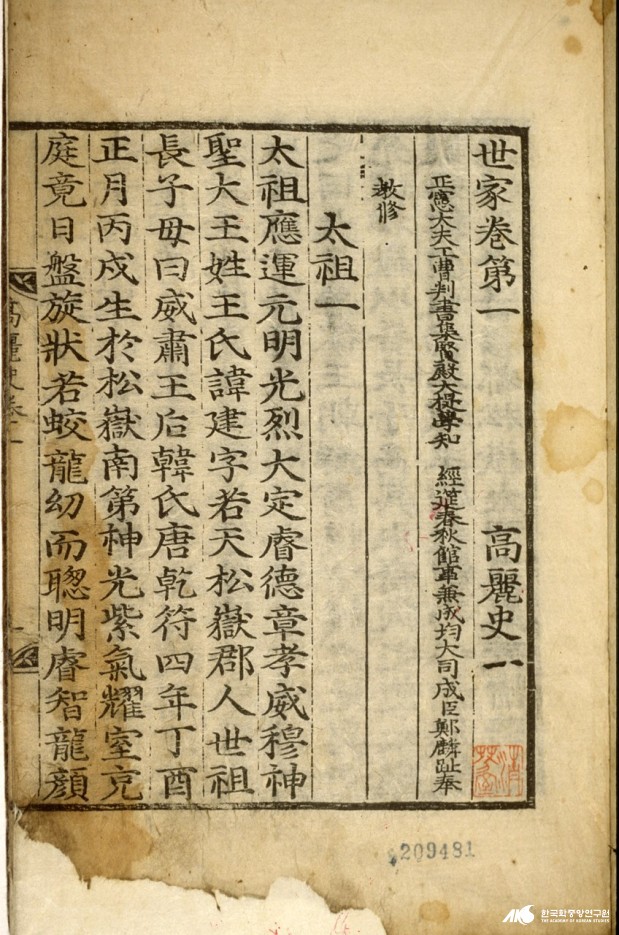 世家卷第一 高麗史一
正憲大夫工曹判書集賢殿大提學知 經筵春秋館事兼成均大司成臣鄭麟趾奉
敎修
太祖一
太祖應運元明光烈大定睿德章孝威穆神
聖大王姓王氏諱建字若天松嶽郡人世祖
長子母曰威肅王后韓氏唐乾符四年丁酉
正月丙戌生於松嶽南第神光紫氣耀室充
庭竟日盤旋狀若蛟龍幼而聦明睿智龍顏
高麗史卷一
清芬室
209481
AKS 한국학중앙연구원
THE ACADEMY OF KOREAN STUDIES